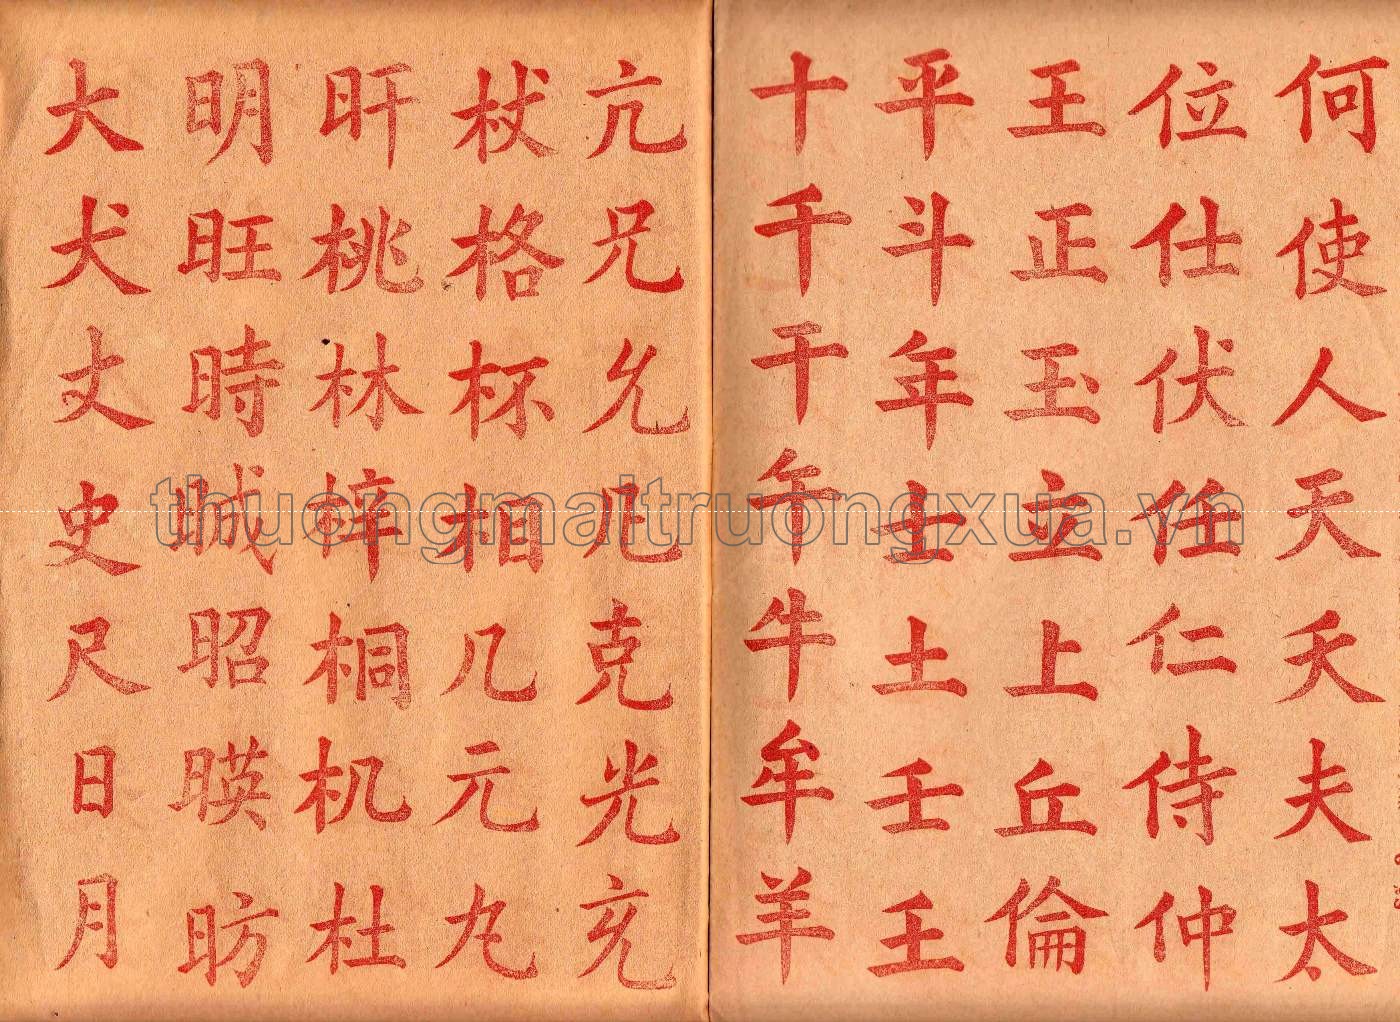 何使人天夭夫太
位仕伏任仁侍仲
王正玉立上丘倫
平斗年士土壬
十千干午牛牟羊
亢兄允克光充
杖格杯相几元
旰桃林梓桐机杜
明旺時昭暎昉
大犬丈史尺日月
thuongmaitruongxua.vn